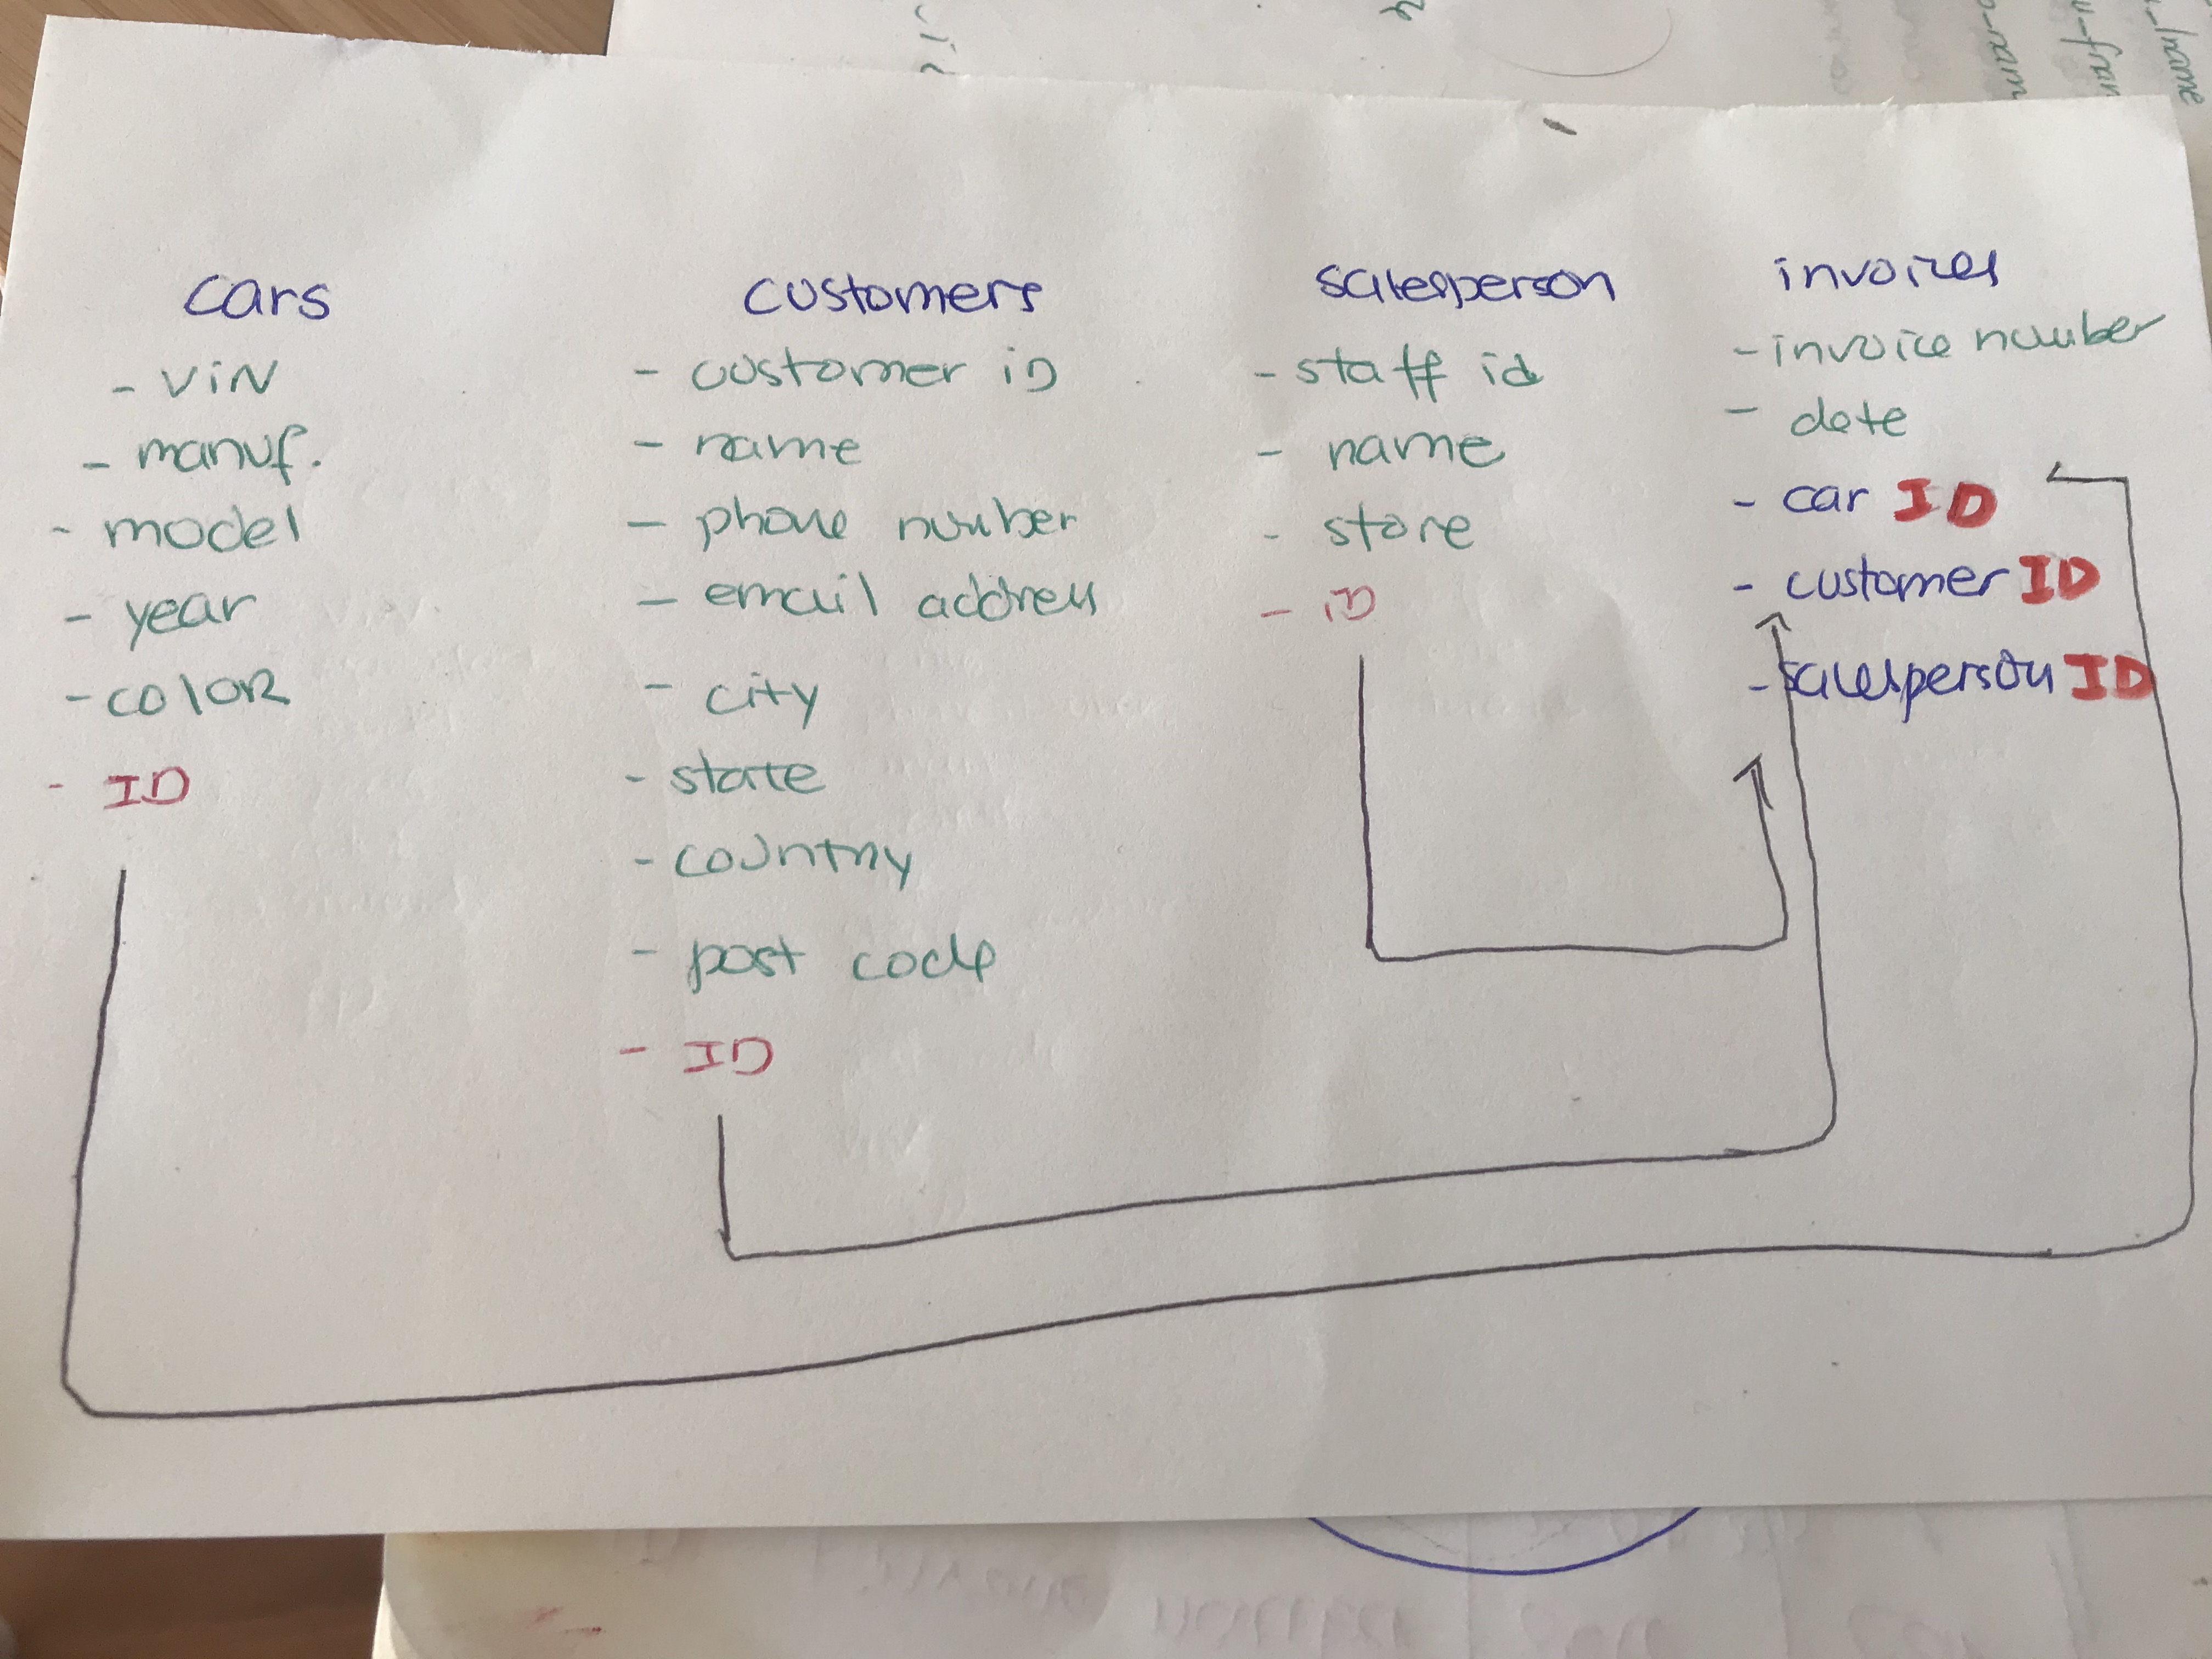 cars
- VIN
- manuf.
- model
- year
- color
- ID
customers
- customer ID
- name
- phone number
- email address
- city
- state
- country
- post code
- ID
salesperson
- staff id
- name
- store
- ID
invoices
- invoice number
- date
- car ID
- customer ID
- salesperson ID